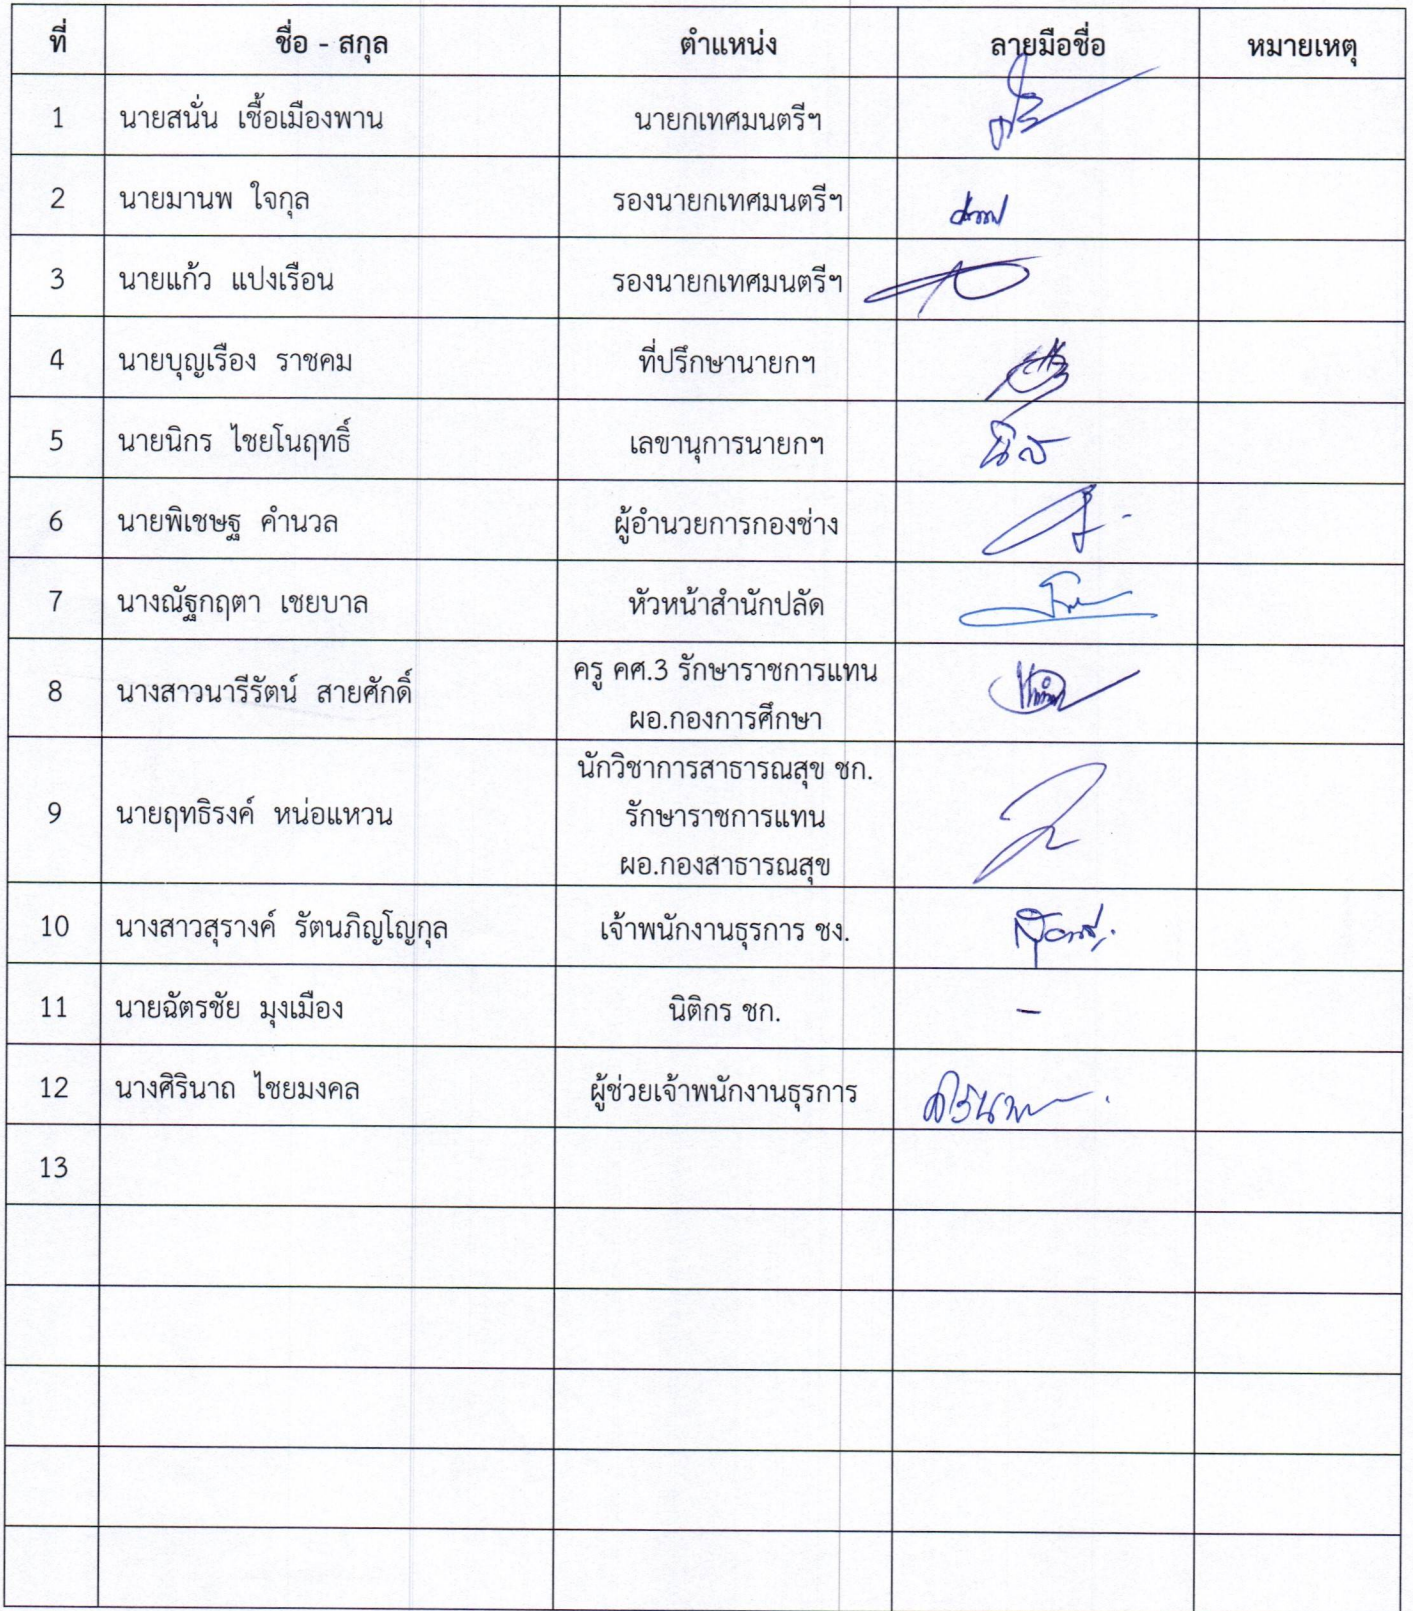 ที่ ชื่อ - สกุล ตำแหน่ง ลายมือชื่อ หมายเหตุ
1 นายสนั่น เชื้อเมืองพาน นายกเทศมนตรีฯ
2 นายมานพ ใจกุล รองนายกเทศมนตรีฯ
3 นายแก้ว แปงเรือน รองนายกเทศมนตรีฯ
4 นายบุญเรือง ราชคม ที่ปรึกษานายกฯ
5 นายนิกร ไชยโนฤทธิ์ เลขานุการนายกฯ
6 นายพิเชษฐ คำนวล ผู้อำนวยการกองช่าง
7 นางณัฐกฤตา เชยบาล หัวหน้าสำนักปลัด
8 นางสาวนารีรัตน์ สายศักดิ์ ครู คศ.3 รักษาราชการแทน
ผอ.กองการศึกษา
9 นายฤทธิรงค์ หน่อแหวน นักวิชาการสาธารณสุข ชก.
รักษาราชการแทน
ผอ.กองสาธารณสุข
10 นางสาวสุรางค์ รัตนภิญโญกุล เจ้าพนักงานธุรการ ชง.
11 นายฉัตรชัย มุงเมือง นิติกร ชก. -
12 นางศิรินาถ ไชยมงคล ผู้ช่วยเจ้าพนักงานธุรการ
13